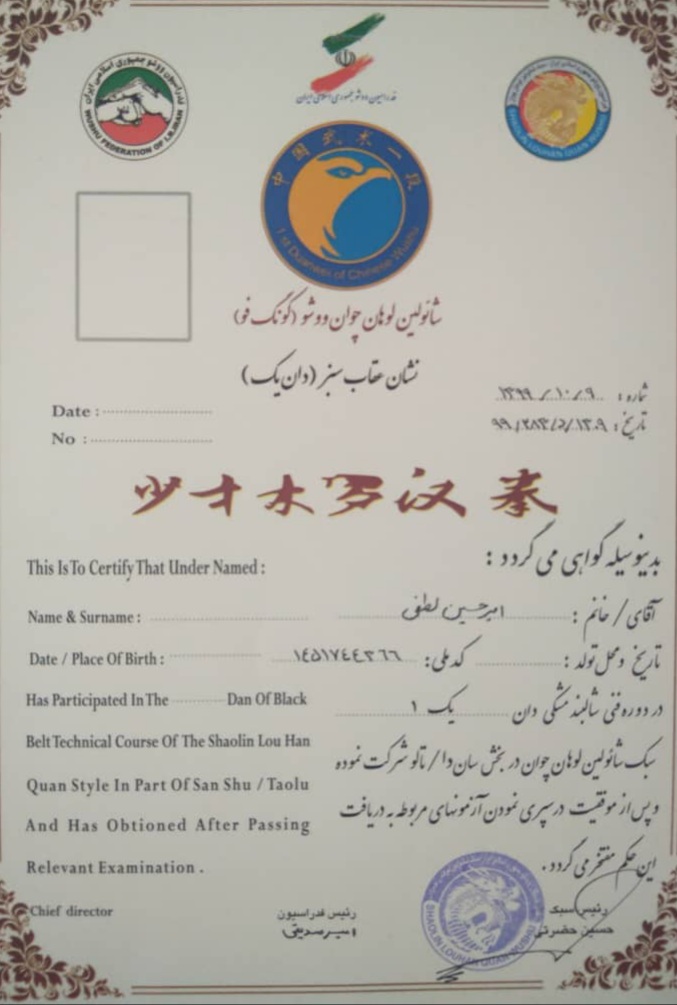 فدراسیون ووشو جمهوری اسلامی ایران
WUSHU FEDERATION OF I.R.IRAN
فدراسیون ووشو جمهوری اسلامی ایران
SHAOLIN LOUHAN QUAN WUSHU
中国武术一段
1 st Duanwei of Chinese Wushu
شائولین لوهان چوان ووشو (کونگ فو)
نشان عقاب سبز (دان یک)
شماره : ۱۳۹۹/۱۰/۹
تاریخ : ۹۹/۲۸۳/د/۱۳۰۹
Date :
No :
少才木罗汉拳
بدینوسیله گواهی می گردد :
This Is To Certify That Under Named :
آقای / خانم : امیرحسین لطفی
Name & Surname :
تاریخ ومحل تولد : کد ملی : ۱۴۵۱۷۴۴۳۶۶
Date / Place Of Birth :
در دوره فنی شالبند مشکی دان یک ۱
Has Participated In The Dan Of Black
سبک شائولین لوهان چوان در بخش سان دا / تالو شرکت نموده
Belt Technical Course Of The Shaolin Lou Han
و پس از موفقیت در سپری نمودن آزمونهای مربوطه به دریافت
Quan Style In Part Of San Shu / Taolu
این حکم مفتخر می گردد .
And Has Obtioned After Passing
Relevant Examination .
Chief director
رئیس فدراسیون
امیر صدیقی
رئیس سبک
حسین حضرتی
SHAOLIN LOUHAN QUAN WUSHU